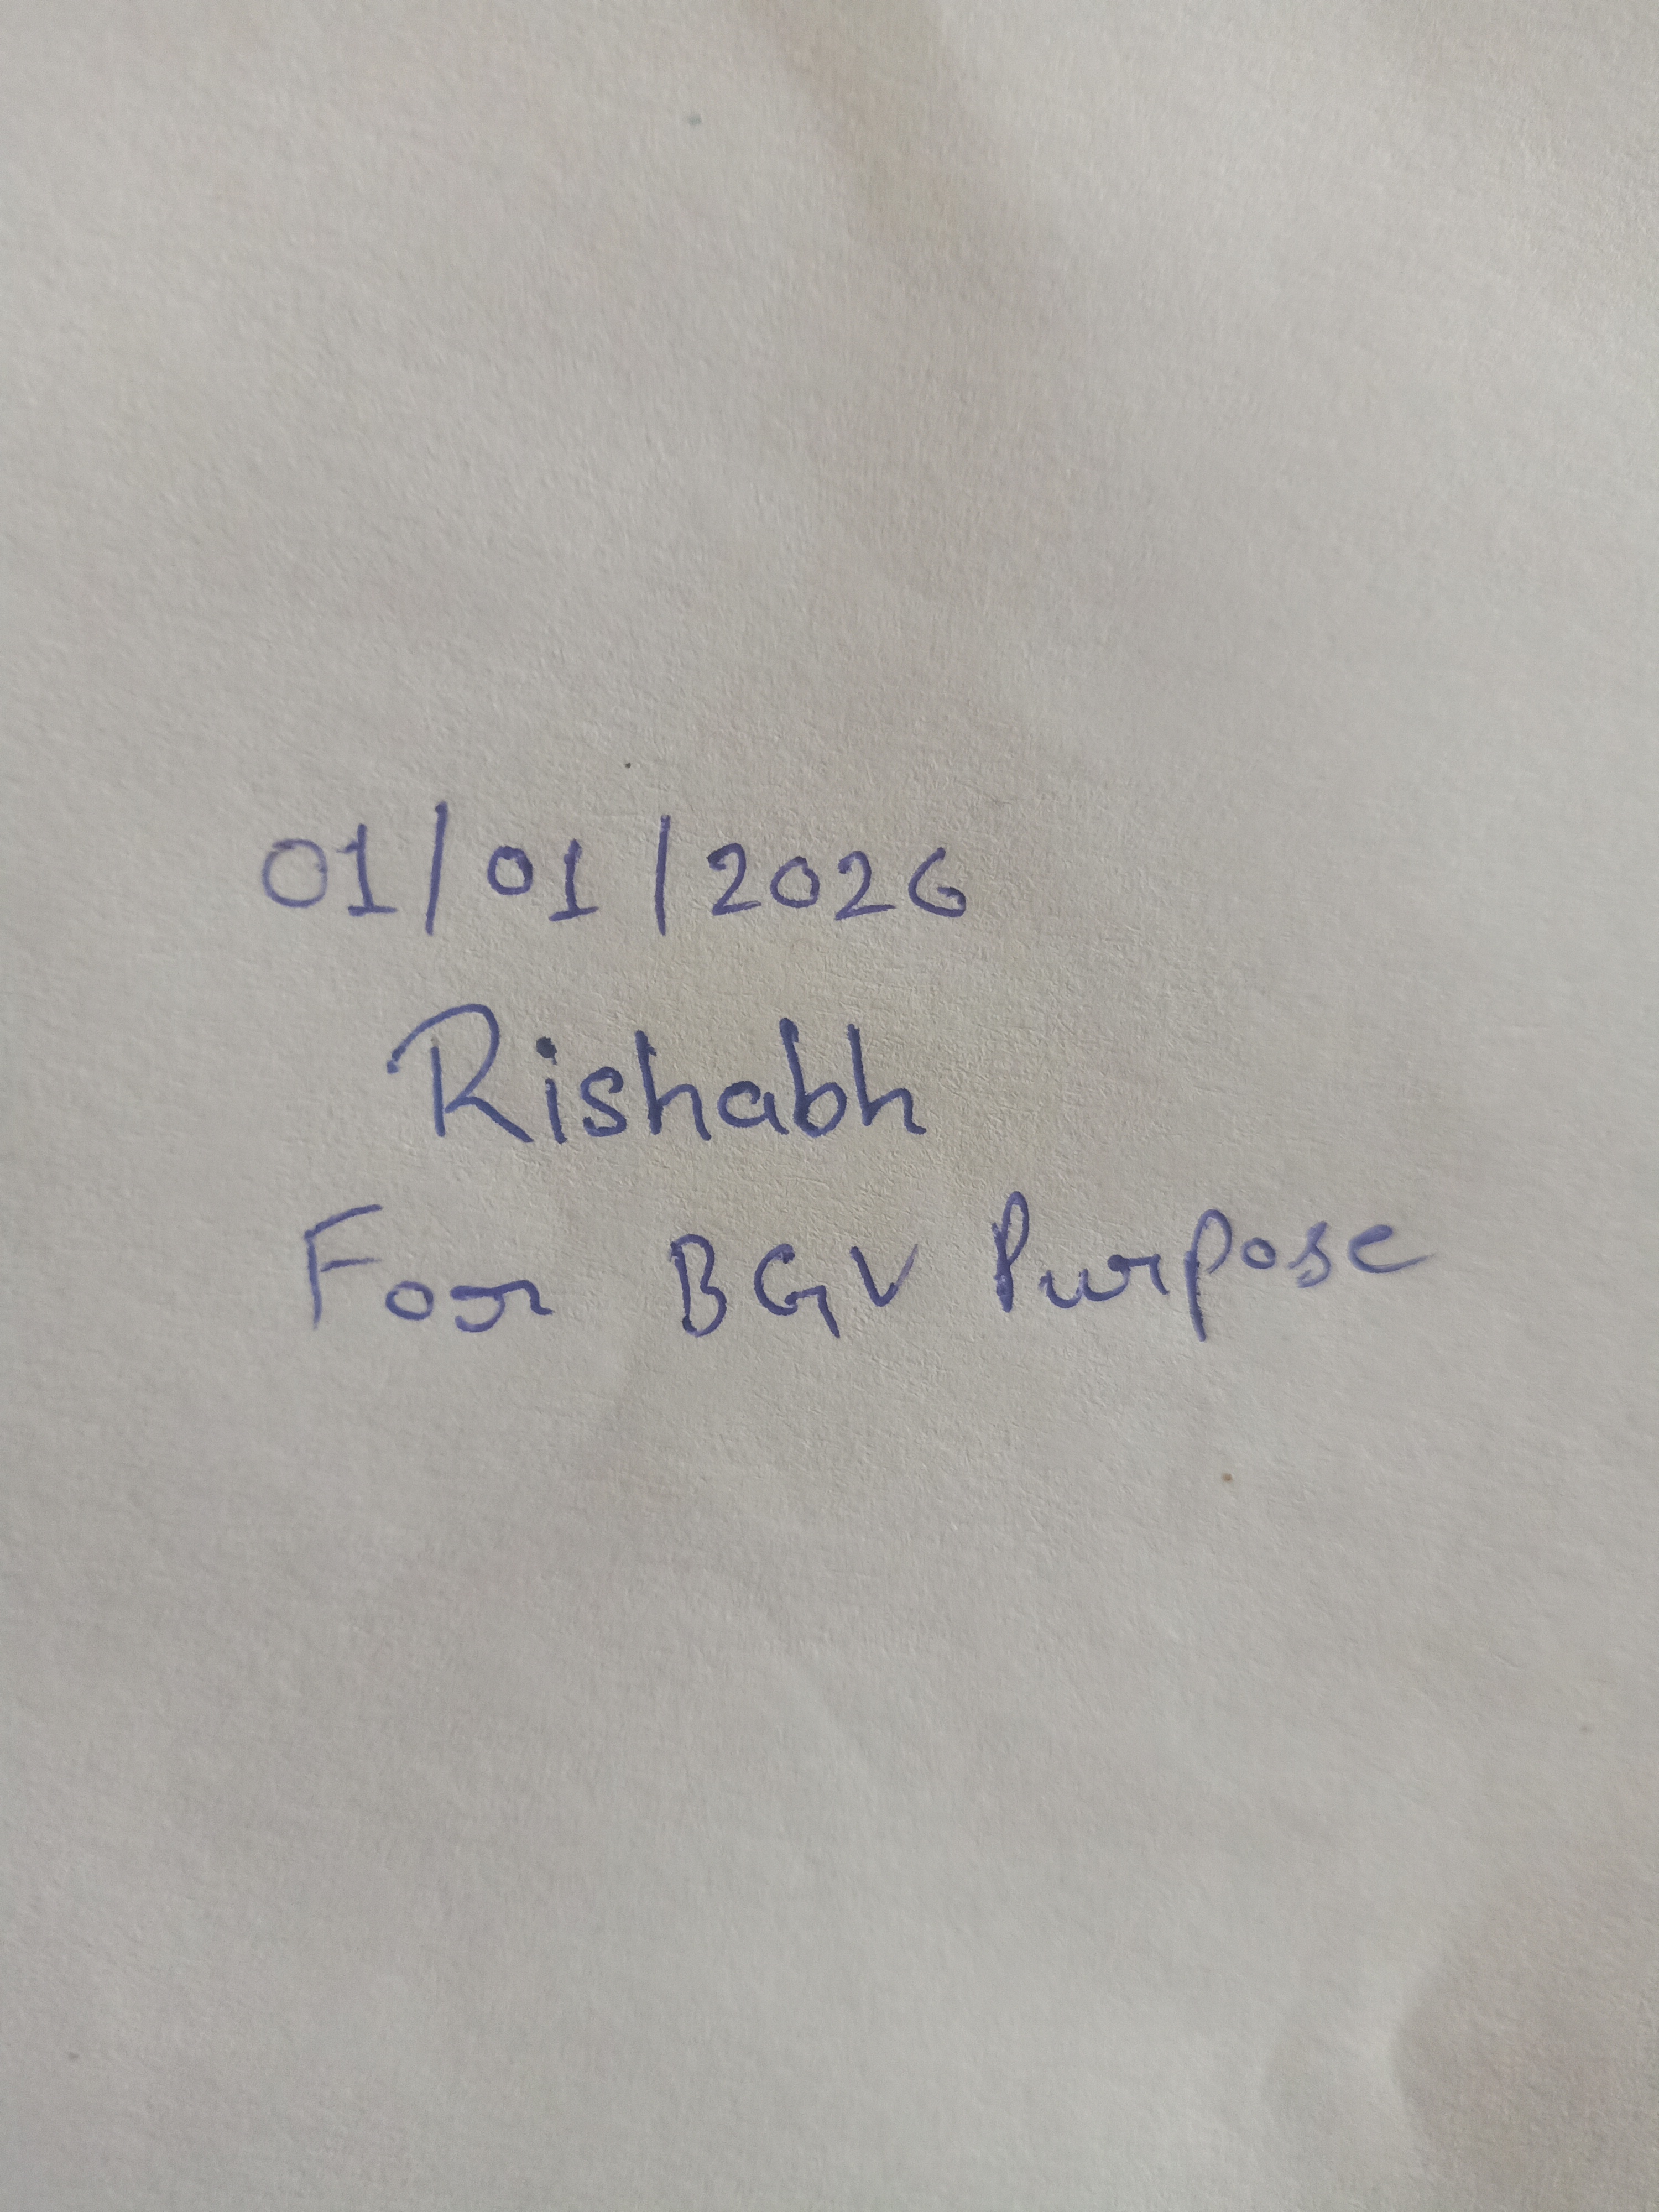 01/01/2026
Rishabh
For BGV Purpose